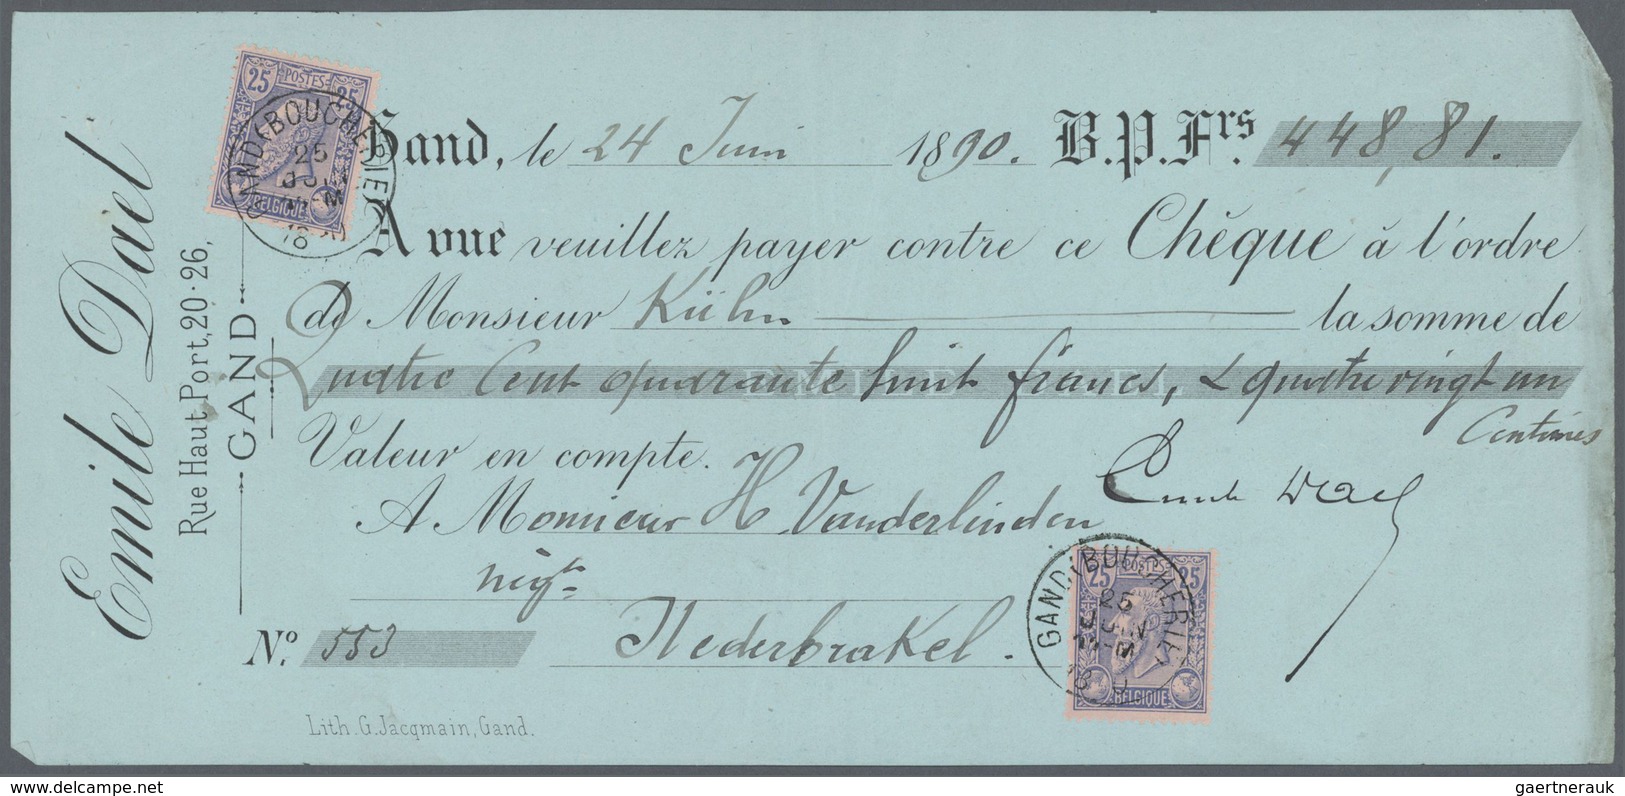 Emile Dael
Rue Haut Port, 20-26,
GAND
25 POSTES 25
BELGIQUE
GAND (BOUCHERIE)
25
JUIN
11-M
Gand, le 24 Juin 1890. B.P.Frs. 448,81.
A vue veuillez payer contre ce Chèque à l'ordre
de Monsieur Kühn la somme de
EMILE DAEL
Quatre Cent quarante huit francs, & quatre vingt un
Centimes
Valeur en compte.
Emile Dael
A Monsieur H Vanderlinden
négt
Nederbrakel.
No. 553
25 POSTES 25
BELGIQUE
GAND (BOUCHERIE)
25
JUIN
11-M
Lith. G. Jacqmain, Gand.
gaertnerauk